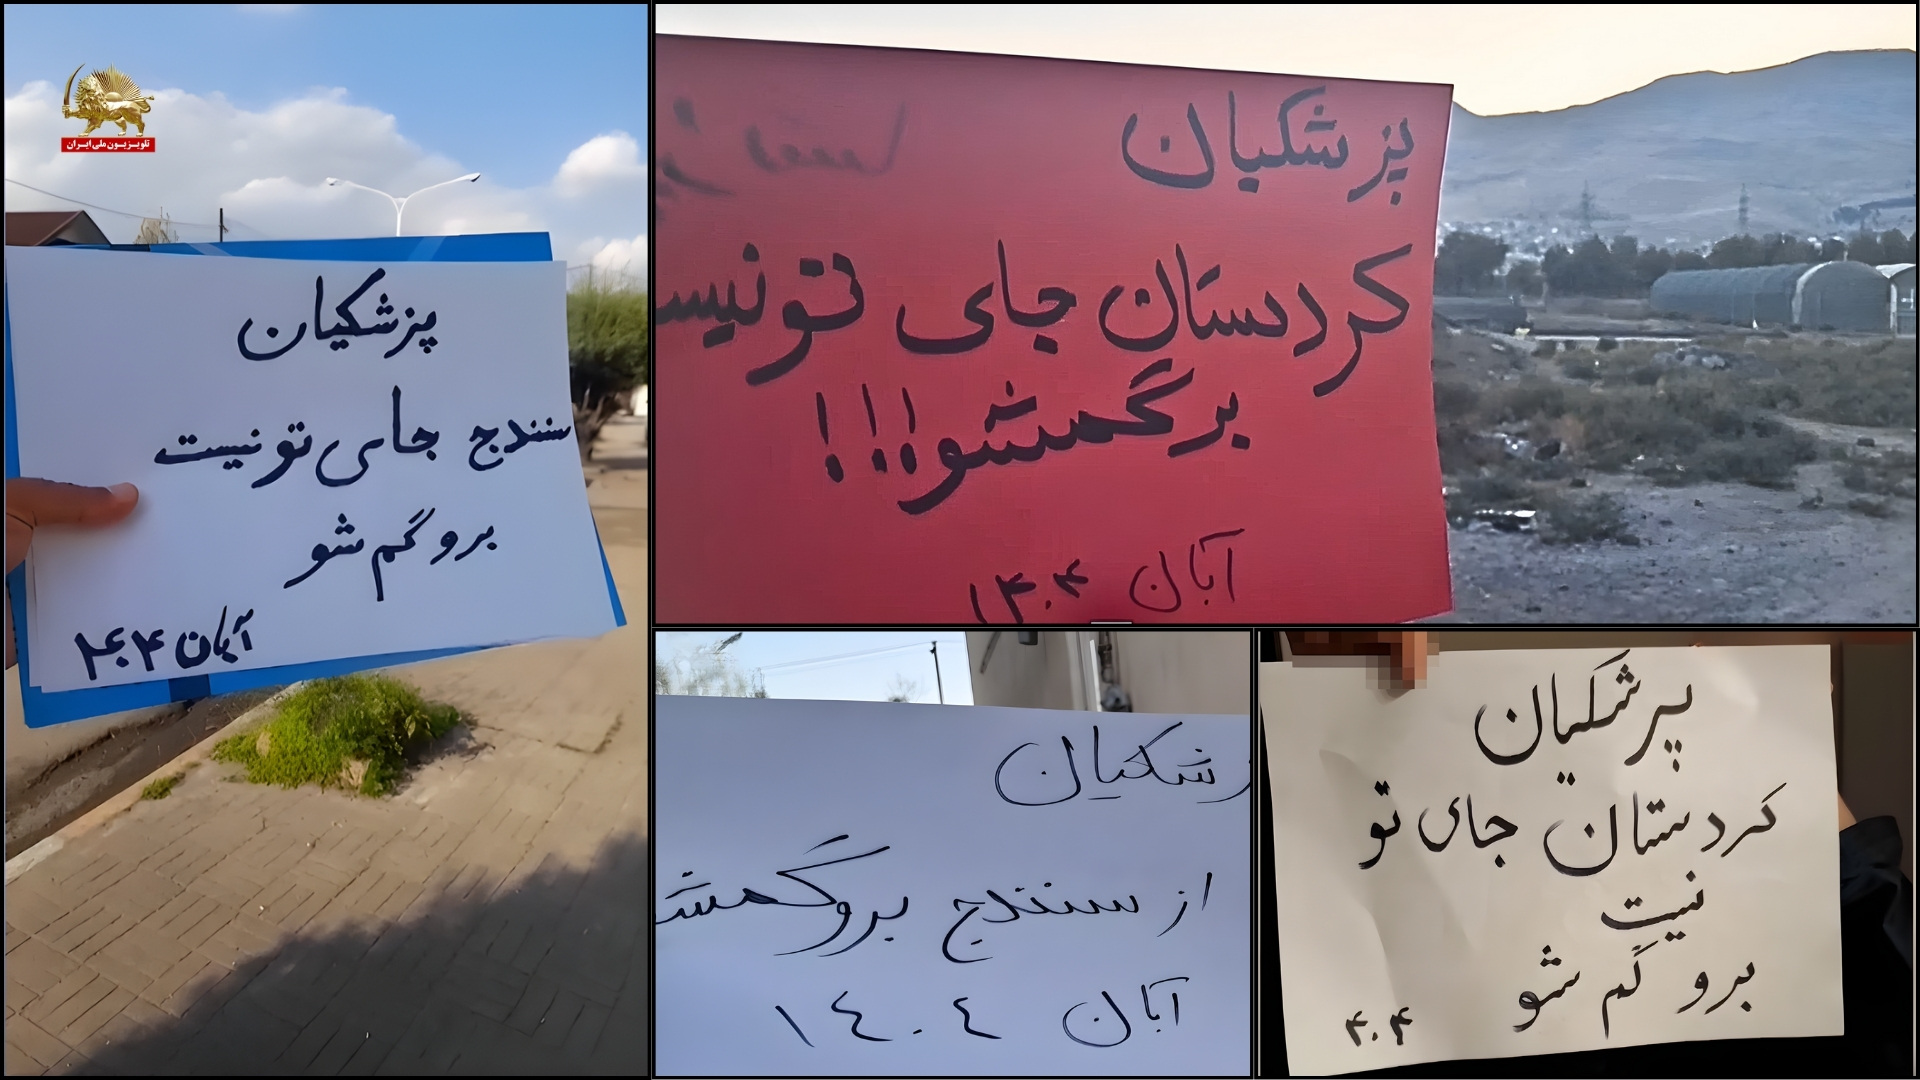 تلویزیون ملی ایران
پزشکیان
سنندج جای تو نیست
برو گم شو
آبان ۱۴۰۴
پزشکیان
کردستان جای تو
برگمشو!!!
آبان ۱۴۰۴
از سنندج بروگمشـ
آبان ١٤٠٤
پزشکیان
کردستان جای تو
نیست
برو گم شو
۴۰۴